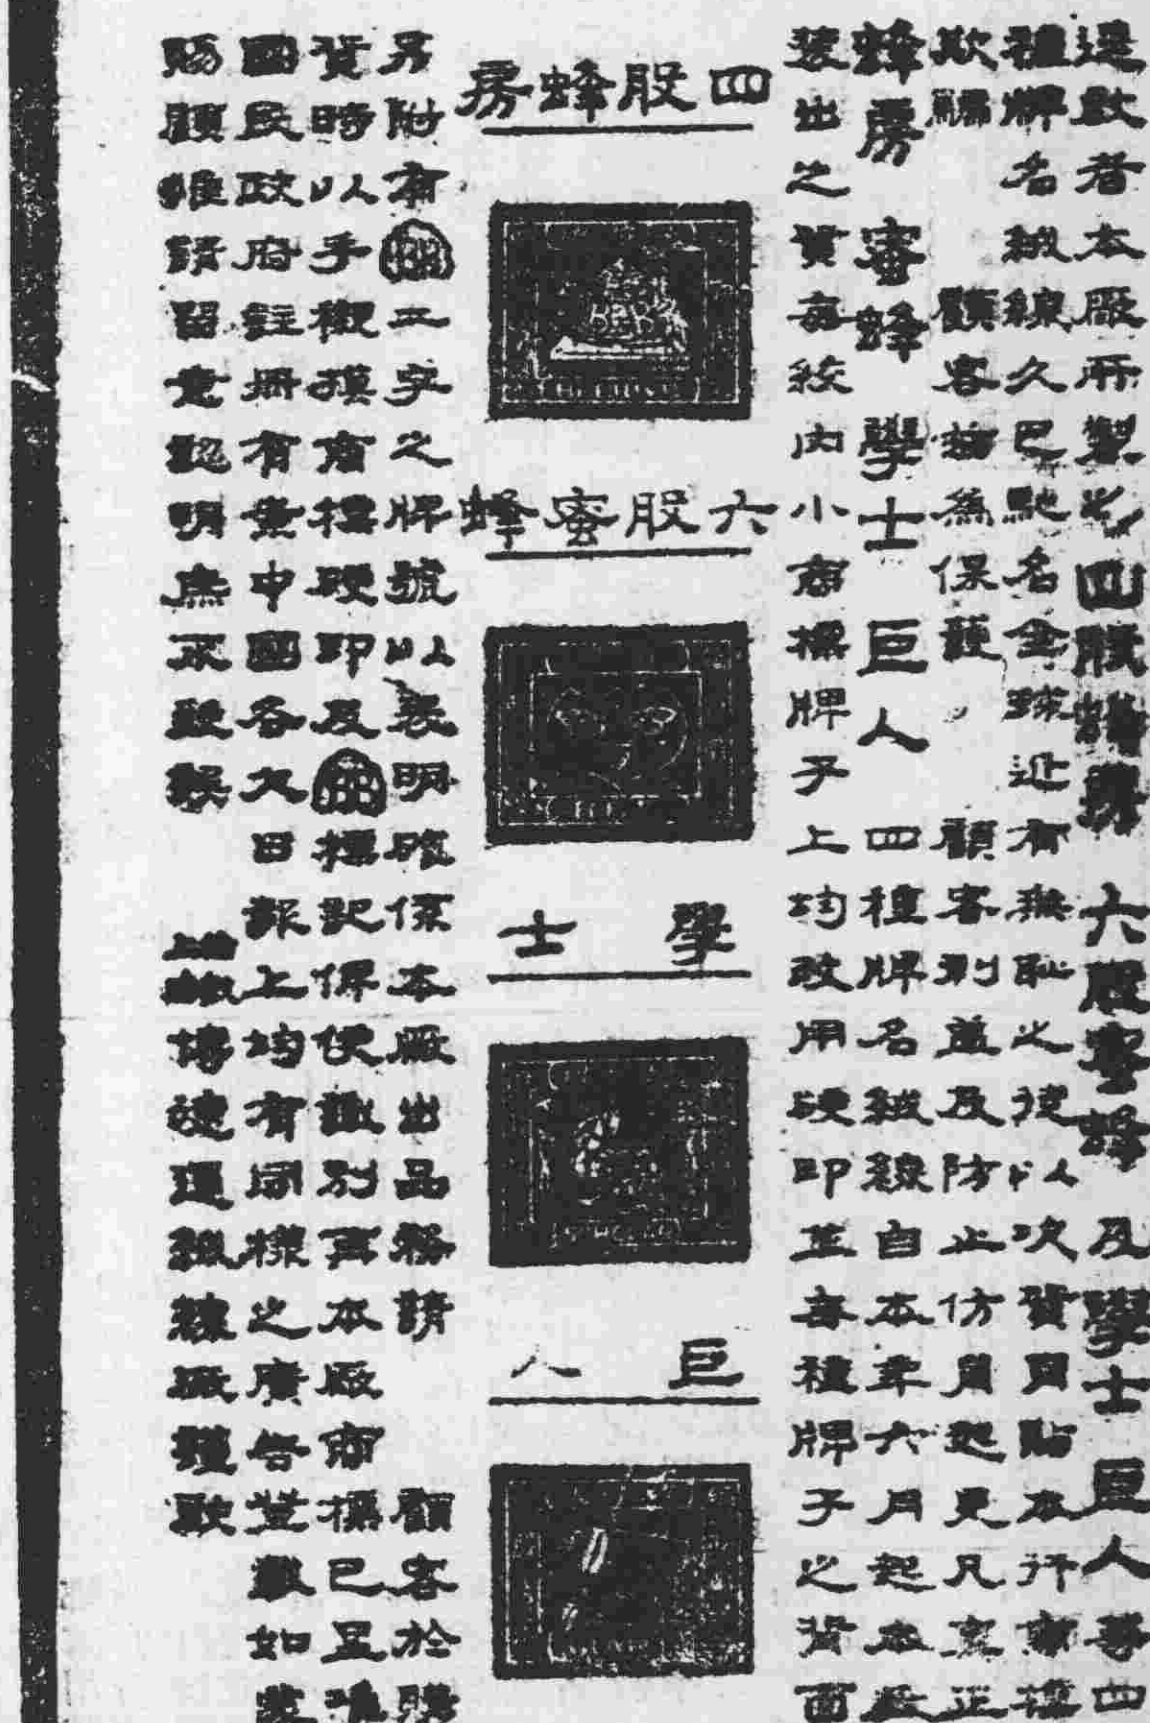 逕啟者本厰所製之四股蜂房　六股蜜蜂　及學士　巨人等四
種牌名絨線久已馳名全球近有無恥之徒以次貨冒貼本行商標
欺騙　顧客茲為保護　顧客利益及防止仿冒起見凡真正
蜂房　蜜蜂　學士　巨人　四種牌名絨線自本年六月起本厰
裝出之貨每絞內小商標牌子上均改用硬印並每種牌子之背面
四股蜂房
六股蜜蜂
學士
巨人
另附有　工字之牌號以表明確係本厰出品務請　顧客於購
貨時以手觀摸商標硬印及　標記俾便識別再本厰商標已呈准
國民政府註冊有案中國各大日報上均有同樣之廣告登載如蒙
賜顧雖請留意認明庶不致誤
博德運絨線厰謹啟